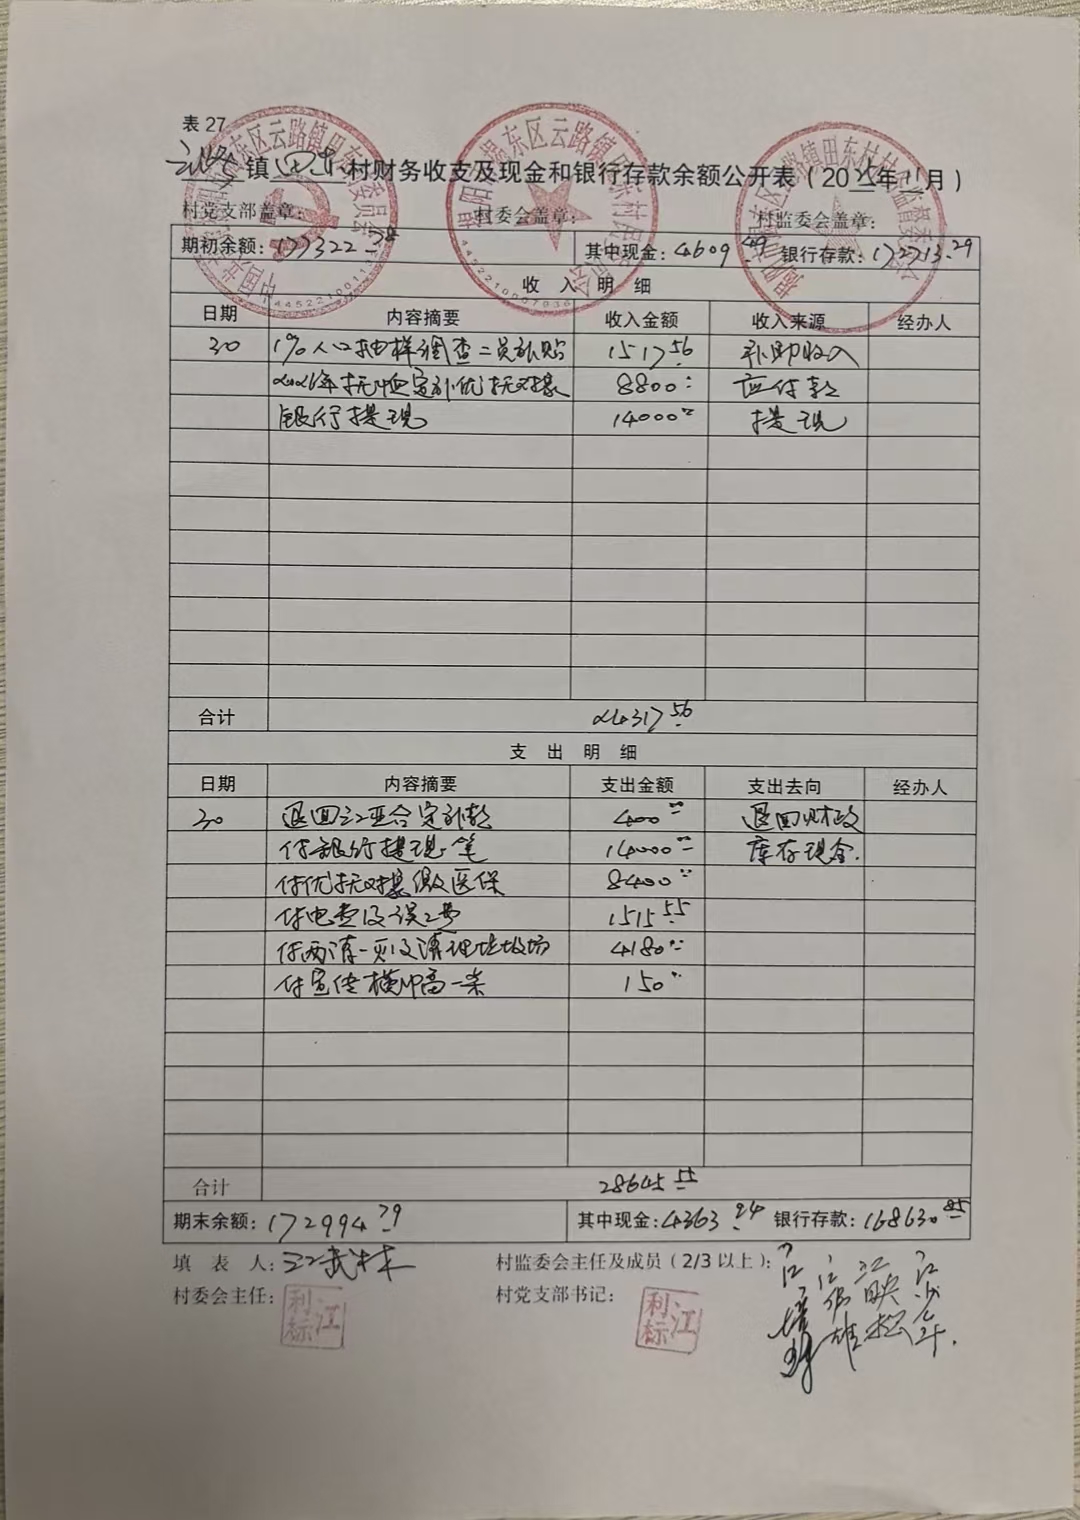 表 27
云路镇田东村财务收支及现金和银行存款余额公开表（2025年11月）
村党支部盖章： 村委会盖章： 村监委会盖章：
期初余额：177322.78 其中现金：4609.49 银行存款：172713.29
收 入 明 细
日期 内容摘要 收入金额 收入来源 经办人
30 1%人口抽样调查二员补贴 1517.56 补助收入
2026年抚恤定补优抚对象 8800.00 应付款
银行提现 14000.00 提现
合计 24317.56
支 出 明 细
日期 内容摘要 支出金额 支出去向 经办人
30 退回江亚合定补款 400.00 退回财政
付银行提现一笔 14000.00 库存现金.
付优抚对象缴医保 8400.00
付电费及误工费 1515.55
付两清一 及清理垃圾场 4180.00
付宣传横 一条 150.00
合计 28645.55
期末余额：172994.79 其中现金：4363.94 银行存款：168630.85
填 表 人：江武林 村监委会主任及成员（2/3 以上）：
村委会主任： 江利标 村党支部书记： 江利标